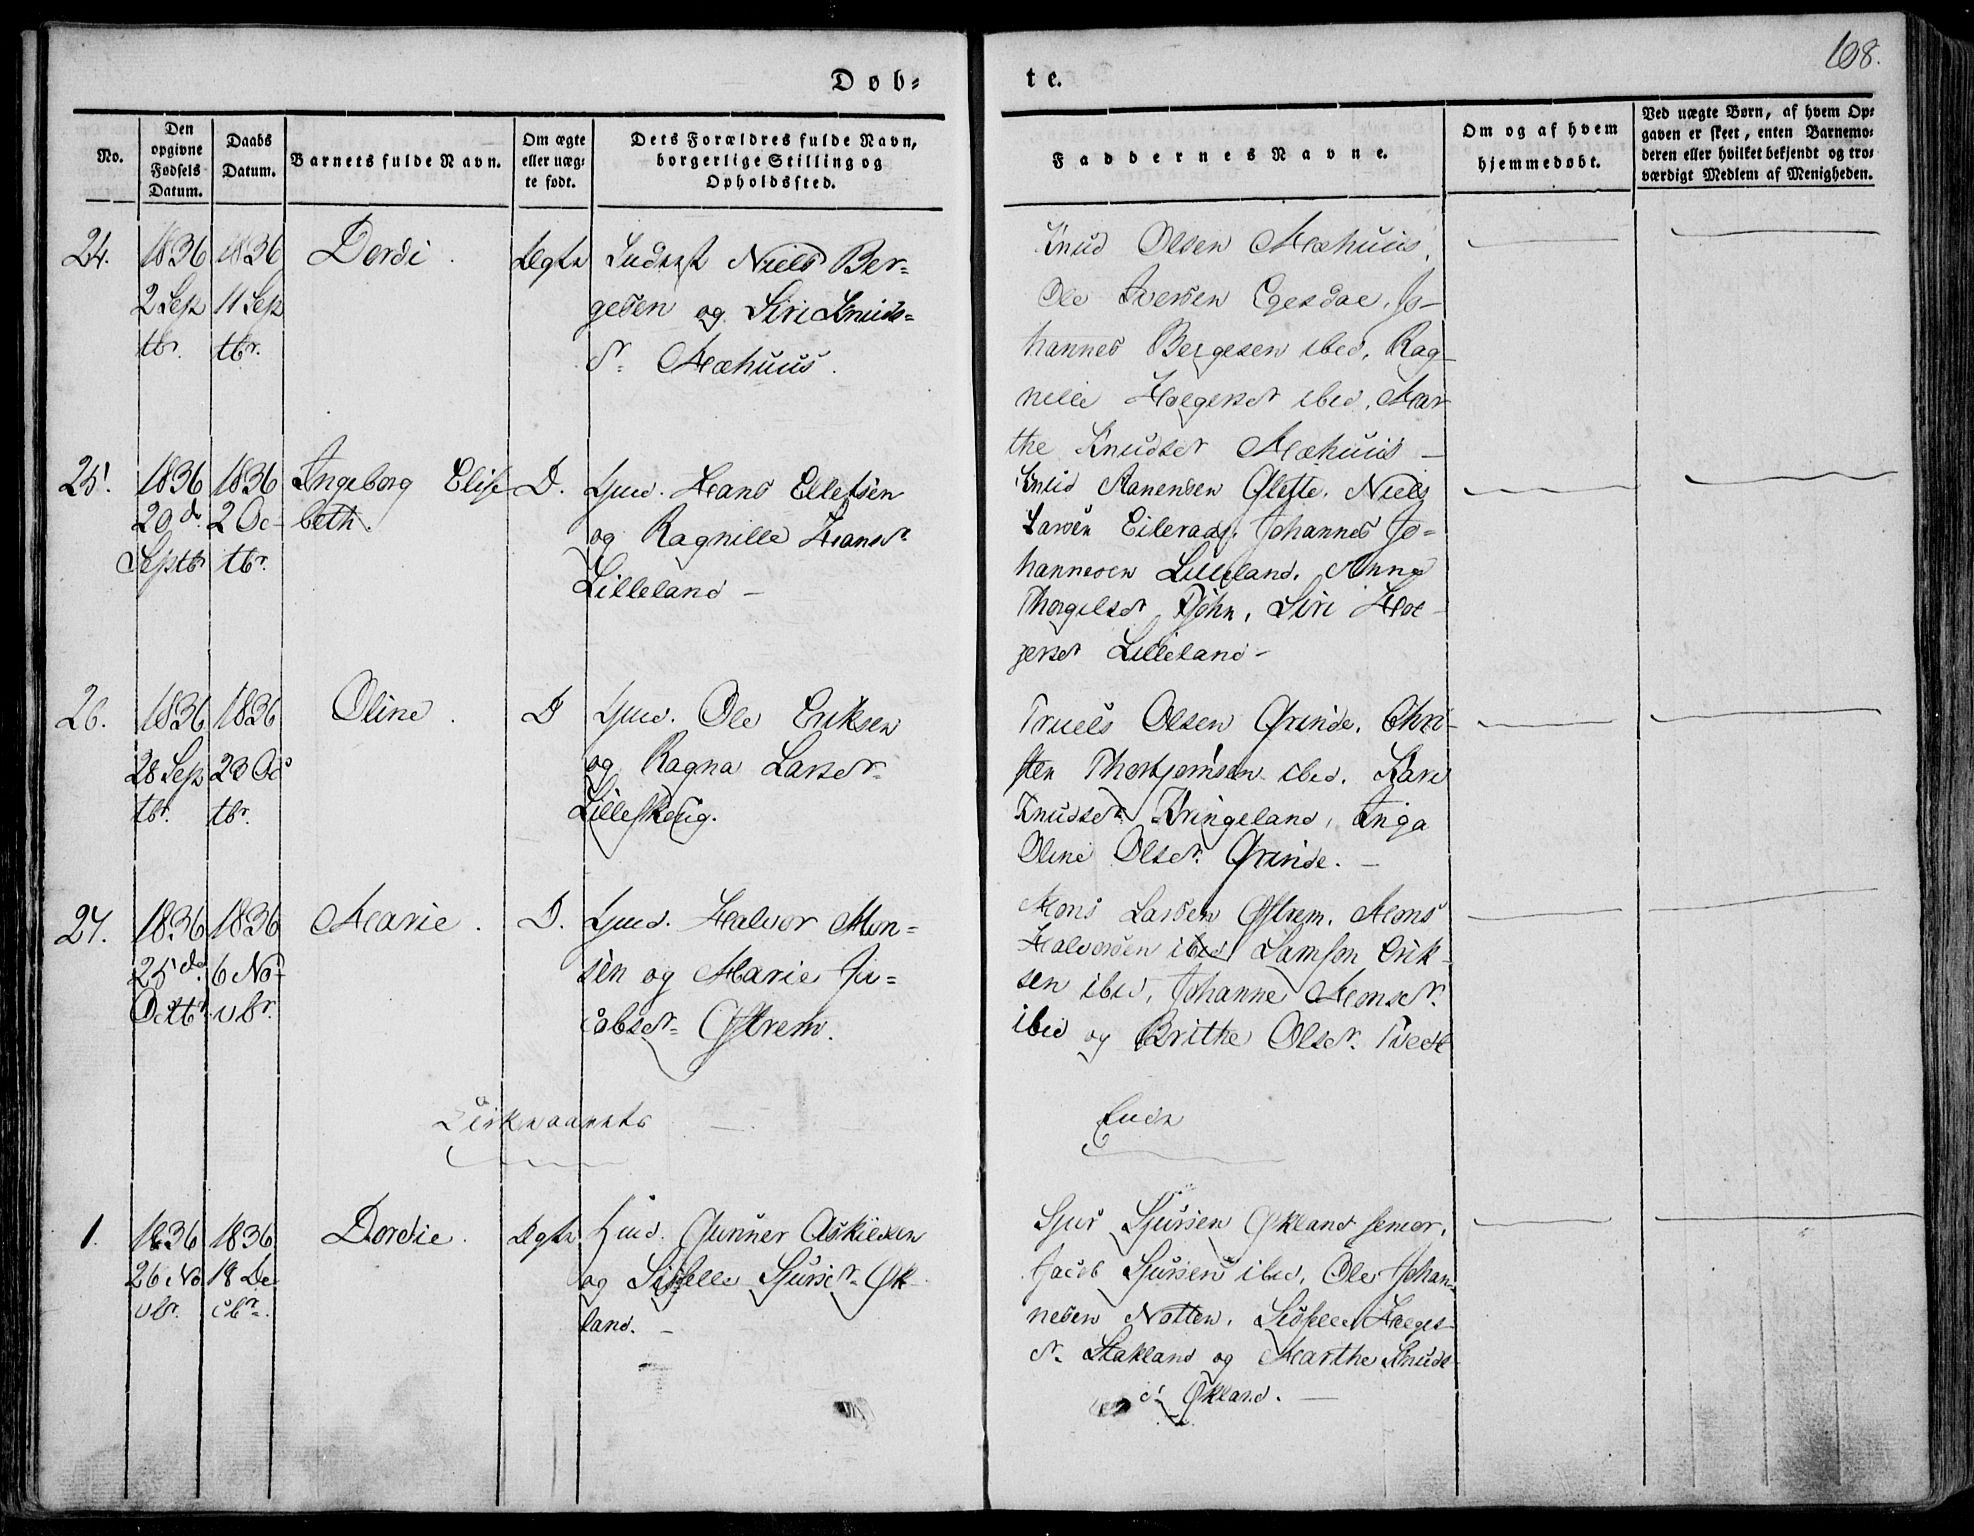 108.
Døb-
te.
No.
Den
opgivne
Fødsels
Datum.
Daabs
Datum.
Barnets fulde Navn.
Om ægte
eller uæg-
te født.
Dets Forældres fulde Navn,
borgerlige Stilling og
Opholdssted.
Faddernes Navne.
Om og af hvem
hjemmedøbt.
Ved uægte Børn, af hvem Op-
gaven er skeet, enten Barnemo-
deren eller hvilket bekjendt og tro-
værdigt Medlem af Menigheden.
24.
1836
2 Sep
tbr.
1836
11 Sep
tbr.
Dordi.
Ægte
Niels Ber-
gesen og Siri Knuds-
dr. Mæhuus.
Knud Olsen Mæhuus,
Ole Iversen Egesdal, Jo-
hannes Bergesen ibid, Rag-
nille Holgersdr ibid, Mar
the Knudsdr Mæhuus -
25.
1836
20 d.
Septbr
1836
2 Oc-
tbr.
Ingeborg Elisa
beth.
D.
Gmd. Hans Ellefsen
og Ragnille Hansdr.
Lilleland -
Knud Aanensen Glette, Niels
Larsen Eileraas, Johannes Jo-
hannesen Lilleland, Anna
Thorgilsdr, Siri Hol-
gersdr Lilleland -
26.
1836
28 Sep
tbr.
1836
23 Oc
tbr.
Oline.
D
Gmd. Ole Eriksen
og Ragna Larsdr.
Lilleskoug.
Truels Olsen Grinde, Chri-
sten Thorbjørnsen ibid. Kari
Knudsdr. Kringeland, Inga
Oline Olsdr. Grinde. -
27.
1836
25 d.
Octbr
1836
6 No-
vbr.
Marie.
D.
Gmd. Halvor Mon-
sen og Marie Ja-
cobsdr. Østrem.
Mons Larsen Østrem, Mons
Halvorsen ibid Samson Erik-
sen ibid, Johanne Monsdr.
ibid og Brithe Olsdr. Tvedt
Kirkeaarets
Ende
1.
1836
26 No
vbr.
1836
18 De-
cbr.
Dordie.
Ægte
Gmd. Gunner Askildsen
og Sisselle Sjursdr. Øk
land. -
Sjur Sjursen Økland senior,
Jacob Sjursen ibid, Ole Johan-
nesen Notten, Sisselle Helges-
dr. Stakland og Marthe Knuds-
dr Økland. -